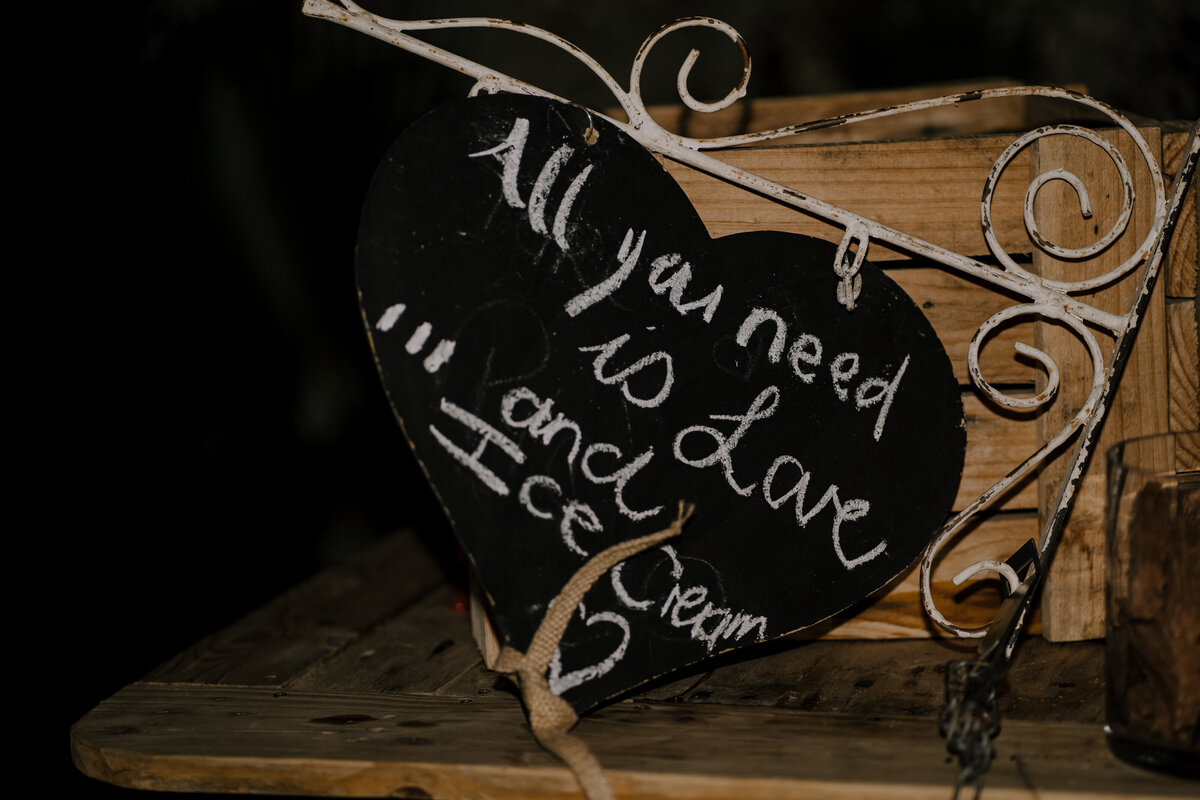 All you need
is Love
... and
Ice Cream